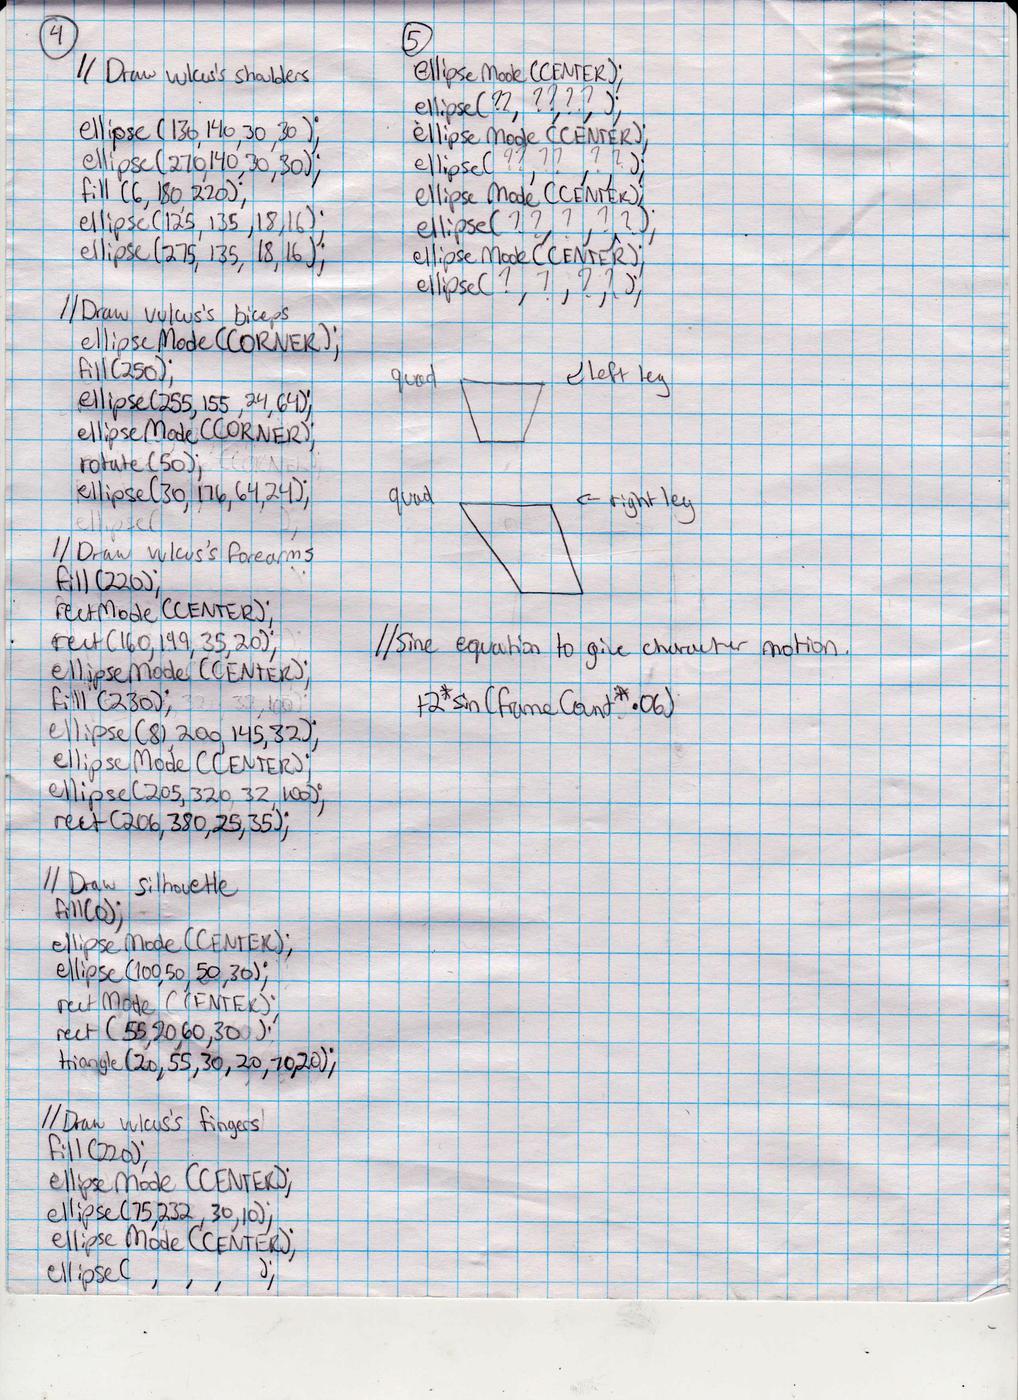 4
// Draw vulcus's shoulders
ellipse (130,140,30,30);
ellipse(270,140,30,30);
fill (6, 180,220);
ellipse(125, 135, 18,16);
ellipse(275, 135, 18,16);
//Draw vulcus's biceps
ellipseMode(CORNER);
fill(250);
ellipse(255,155,24,64);
ellipseMode(CORNER);
rotate(50);
ellipse(30,176,64,24);
ellipse(
// Draw vulcus's forearms
fill(220);
rectMode(CENTER);
rect(160,199,35,20);
ellipseMode (CENTER);
fill (230);
ellipse (81,200,145,32);
ellipseMode (CENTER);
ellipse(205,320,32,100);
rect(206,380,25,35);
// Draw silhouette
fill(0);
ellipseMode(CENTER);
ellipse(100,50,50,30);
rectMode (CENTER);
rect (55,20,60,30);
triangle(20,55,30,20,70,20);
//Draw vulcus's fingers
fill(220);
ellipseMode (CENTER);
ellipse(75,232,30,10);
ellipse Mode (CENTER);
ellipse( , , , );
5
ellipseMode(CENTER);
ellipse(??, ??,??, );
ellipse Mode (CENTER);
ellipse( ??,??, ,??);
ellipse Mode (CENTER);
ellipse(??,?,?,?);
ellipseMode(CENTER);
ellipse(?,?,?,?);
quad left leg
quad ← right leg
//Sine equation to give character motion.
+2*sin(frameCount*.06)